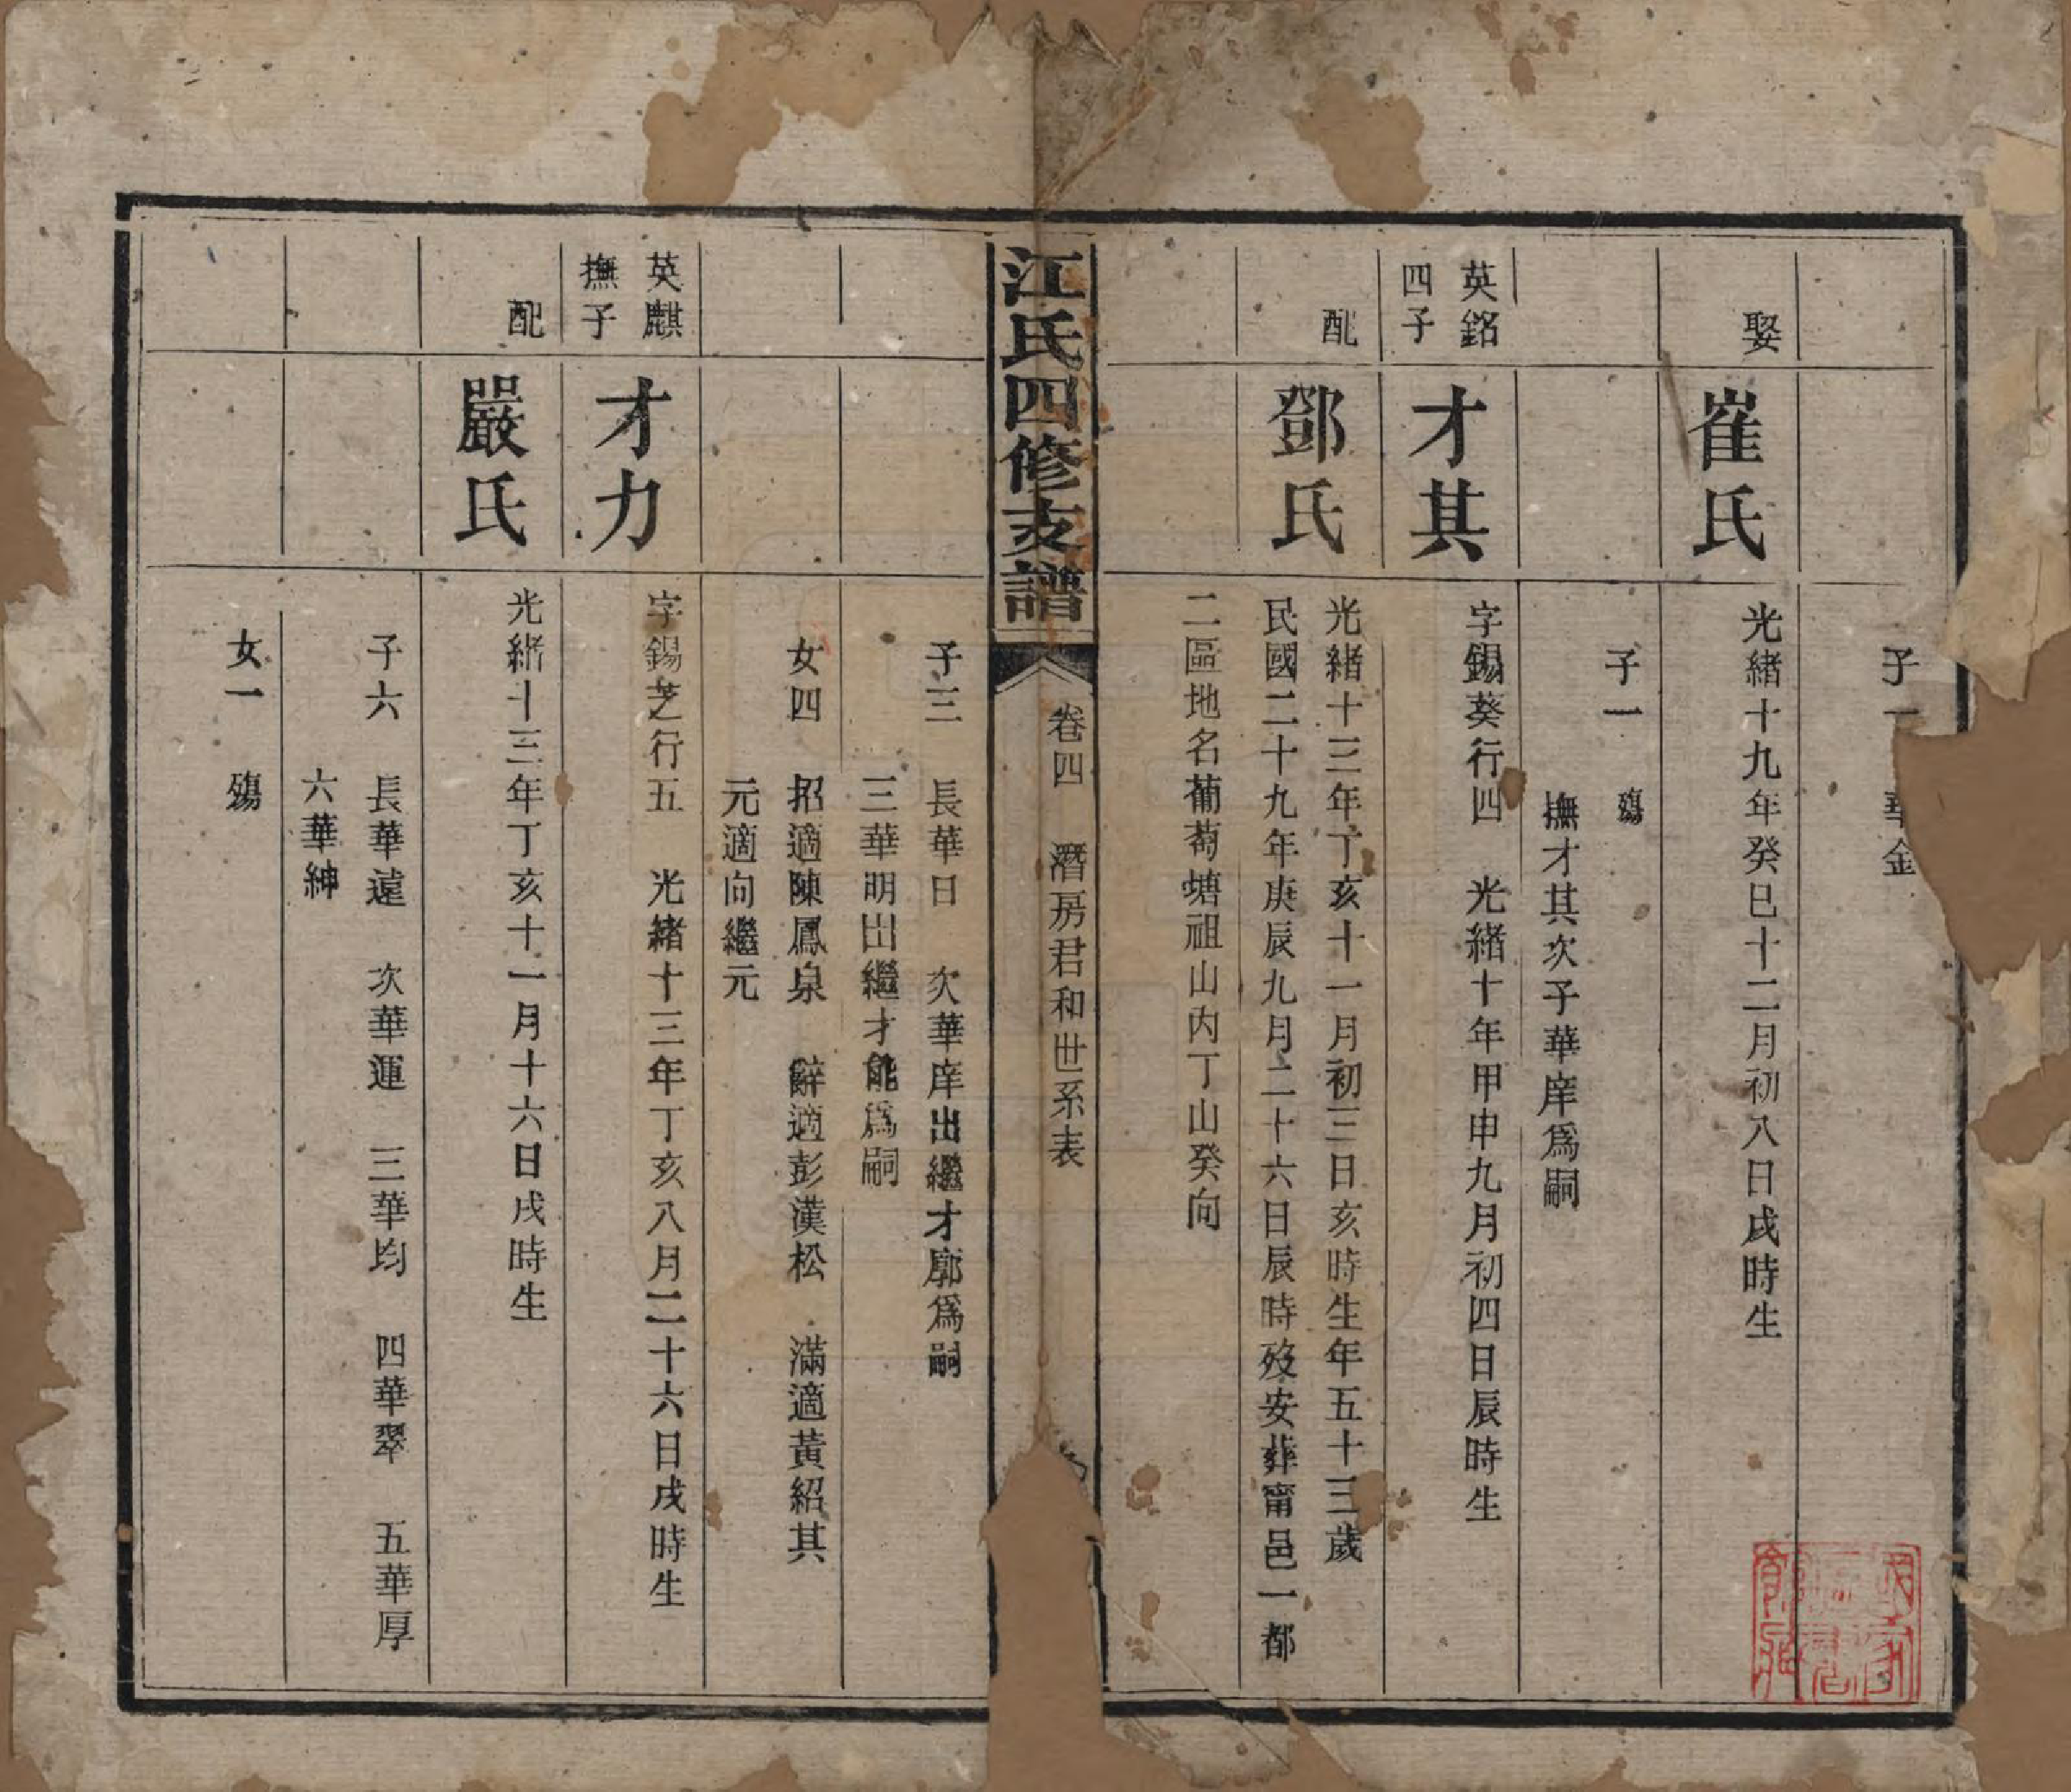 子一 華金
娶
崔氏
光緒十九年癸巳十二月初八日戌時生
子一 殤
撫才其次子華庠爲嗣
英銘
四子
才其
字錫葵行四 光緒十年甲申九月初四日辰時生
配
鄧氏
光緒十三年丁亥十一月初三日亥時生年五十三歲
民國二十九年庚辰九月二十六日辰時歿安葬甯邑一都
二區地名葡萄塘祖山内丁山癸向
江氏四修支譜
卷四 濳房君和世系表
子三 長華日 次華庠出繼才廓爲嗣
三華明出繼才能爲嗣
女四 招適陳鳳泉 辭適彭漢松 滿適黃紹其
元適向繼元
英麒
撫子
才力
字錫芝行五 光緒十三年丁亥八月二十六日戌時生
配
嚴氏
光緒十三年丁亥十一月十六日戌時生
子六 長華遠 次華運 三華均 四華翠 五華厚
六華紳
女一 殤